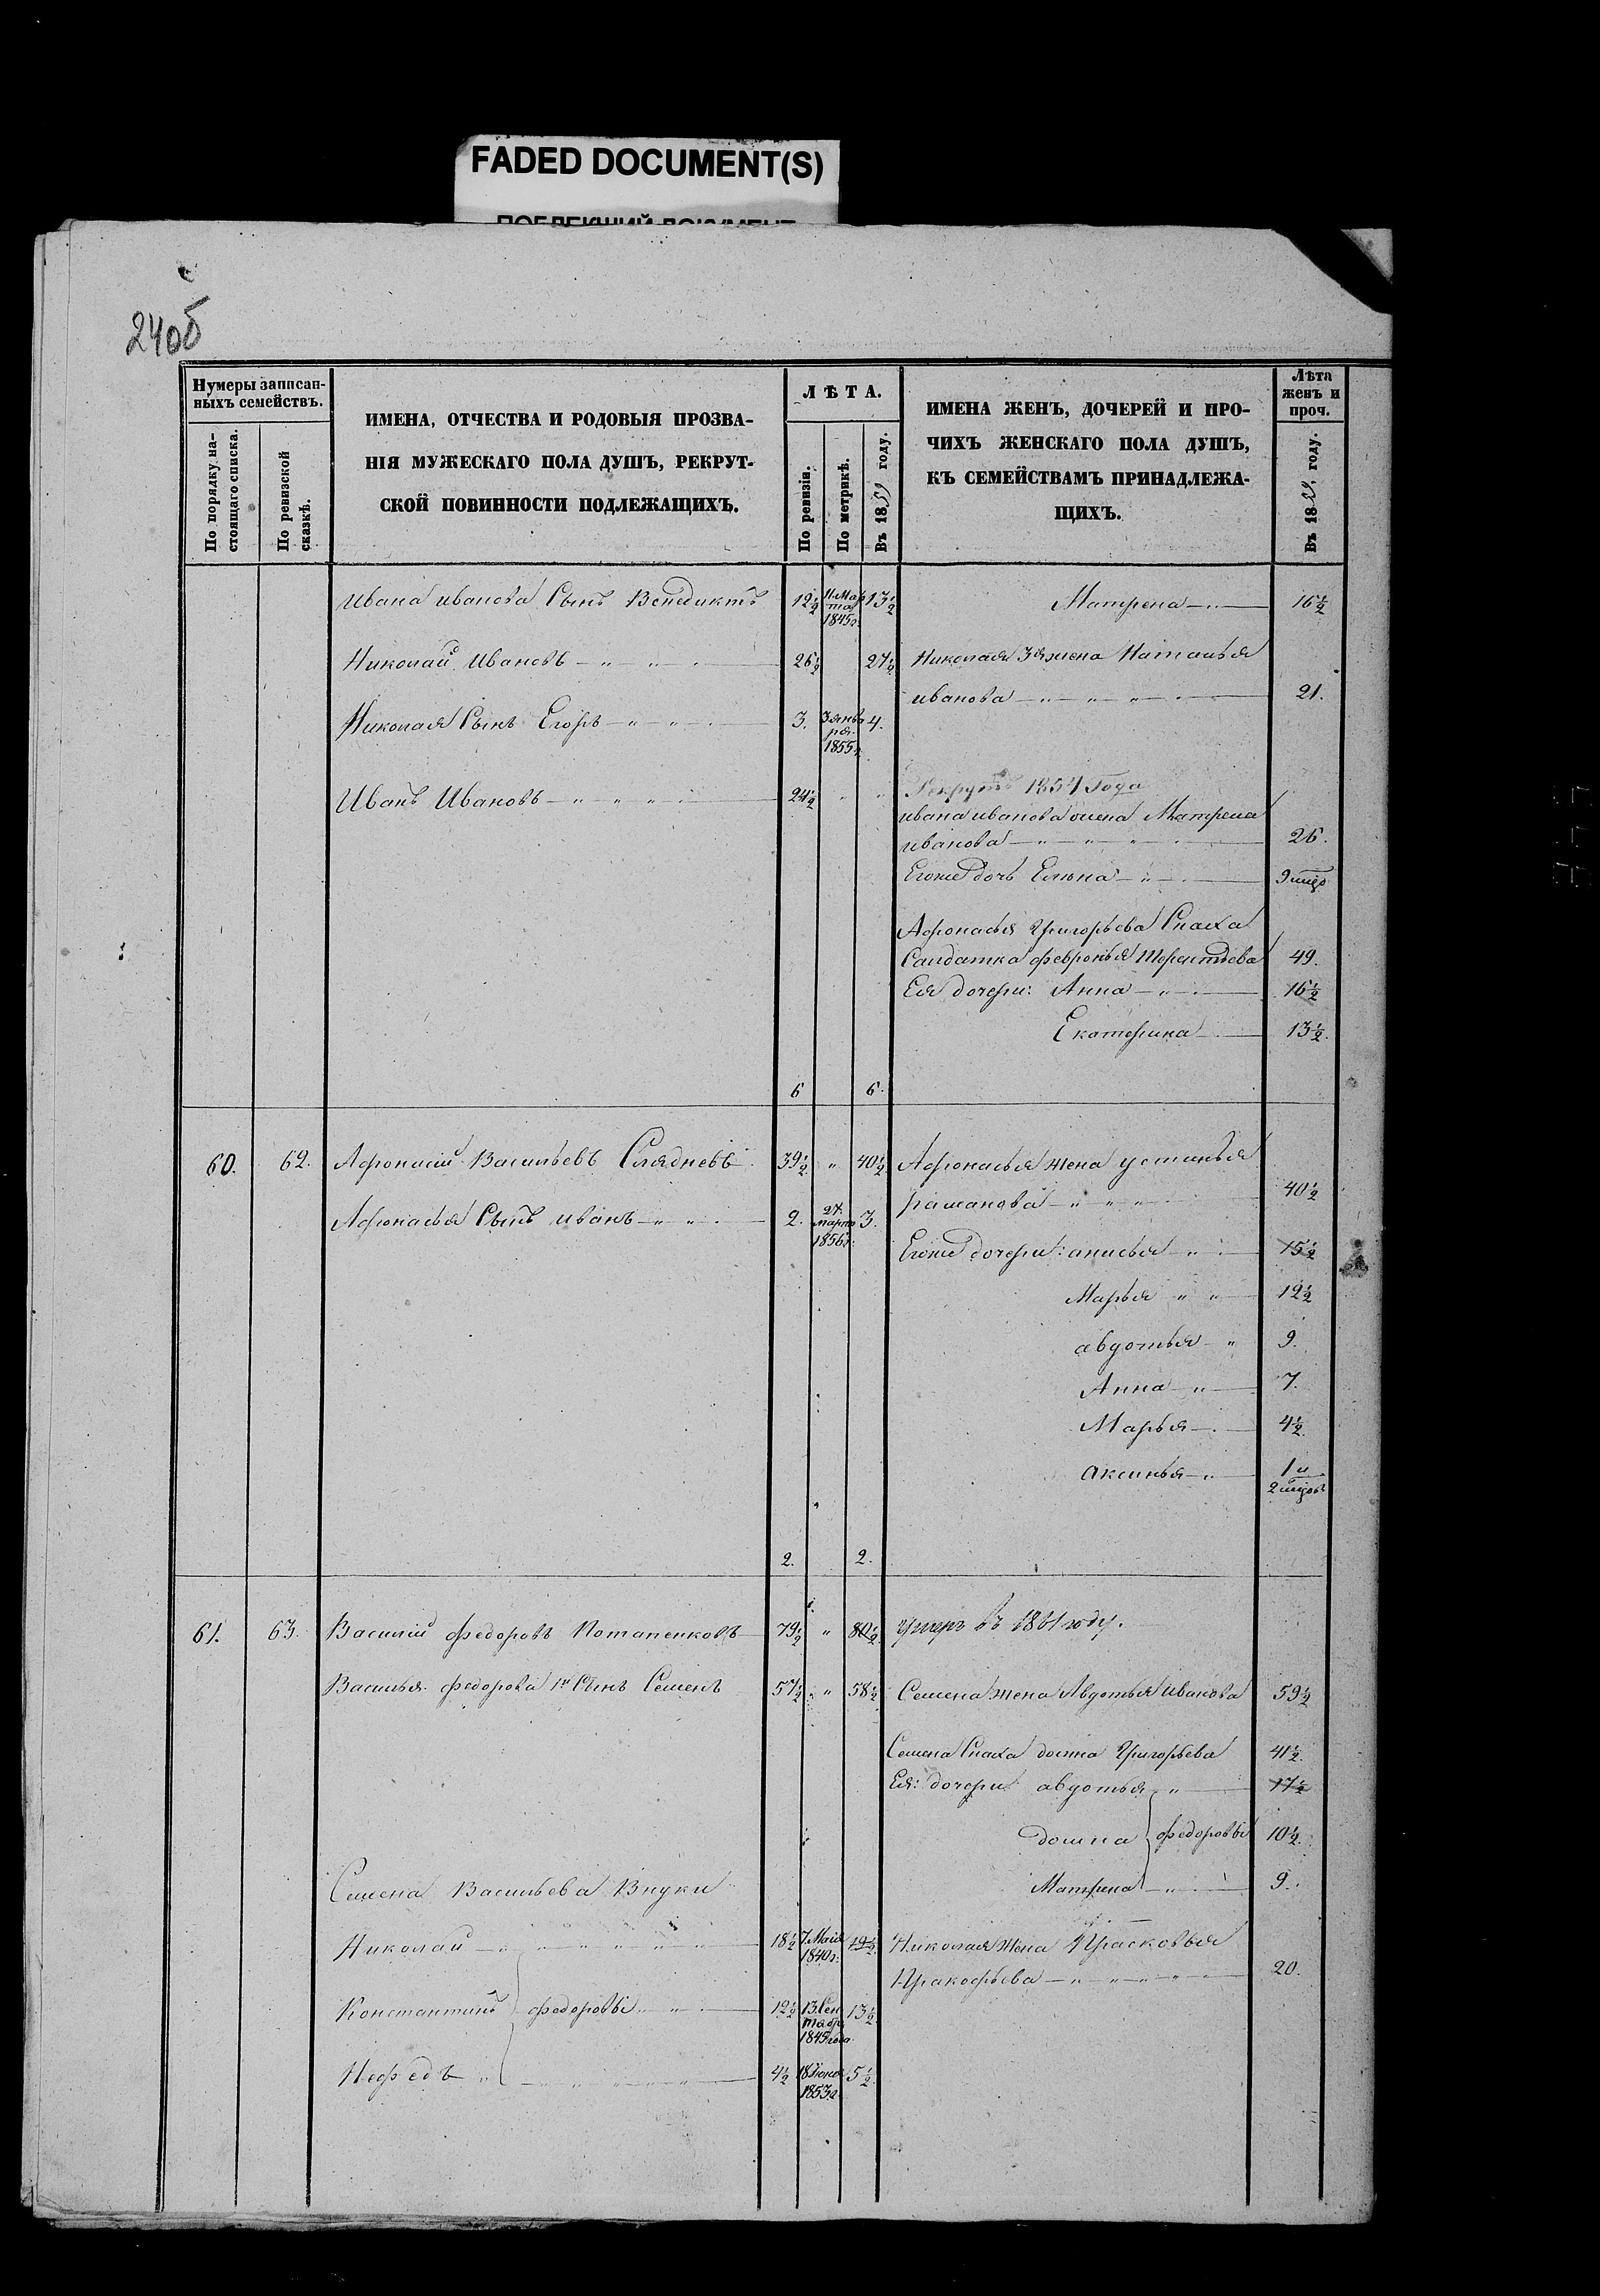 FADED DOCUMENT(S)
240б
Нумеры записан-
ныхъ семействъ.
По порядку на-
стоящаго списка.
По ревизской
сказкѣ.
ИМЕНА, ОТЧЕСТВА И РОДОВЫЯ ПРОЗВА-
НІЯ МУЖЕСКАГО ПОЛА ДУШЪ, РЕКРУТ-
СКОЙ ПОВИННОСТИ ПОДЛЕЖАЩИХЪ.
ЛѢТА.
По ревизіи.
По метрикѣ.
Въ 1859 году.
ИМЕНА ЖЕНЪ, ДОЧЕРЕЙ И ПРО-
ЧИХЪ ЖЕНСКАГО ПОЛА ДУШЪ,
КЪ СЕМЕЙСТВАМЪ ПРИНАДЛЕЖА-
ЩИХЪ.
Лѣта
женъ и
проч.
Въ 1859 году.
Ивана иванова Сынъ Венедиктъ 12½ 11 Мар
та
1845г. 13½ Матрена 16½
Николай Ивановъ 26½ 27½ Николая 3я жена Наталья
иванова 21.
Николая Сынъ Егоръ 3. 3 янва
ря
1855г. 4.
Иванъ Ивановъ 24½ Рекрутъ 1854 Года
ивана иванова жена Матрена
иванова 26.
Егоже дочь Елена 9 мцъ
Афонасья Григорьева Сноха
Салдатка февронья Терентьева 49.
Ея дочери: Анна 16½
Екатерина 13½
6 6.
60. 62. Афонасій Васильевъ Слядневъ 39½ 40½ Афонасья жена устинья
рамановa 40½
Афонасья Сынъ иванъ 2. 27.
марта
1856г. 3.
Егоже дочери: анисья 15½
Марья 12½
авдотья 9.
Анна 7.
Марья 4½
аксинья 1 и
2 мцовъ
2. 2.
61. 63. Василій федоровъ Потапенковъ 79½ 80½ умеръ въ 1861 году.
Василья федорова 1й Сынъ Семенъ 57½ 58½ Семена жена Авдотья иванова 59½
Семена Сноха домна Григорьева 41½
Ея: дочери авдотья 17½
домна федоровы 10½
Матрена 9.
Семена Васильева Внуки
Николай 18½ 7 Маія
1840г. 19½ Николая жена Прасковья
Пракофьева 20.
Константинъ федоровы 12½ 13 Сен
тября
1845 года 13½
Нефедъ 4½ 18 Іюня
1853г. 5½